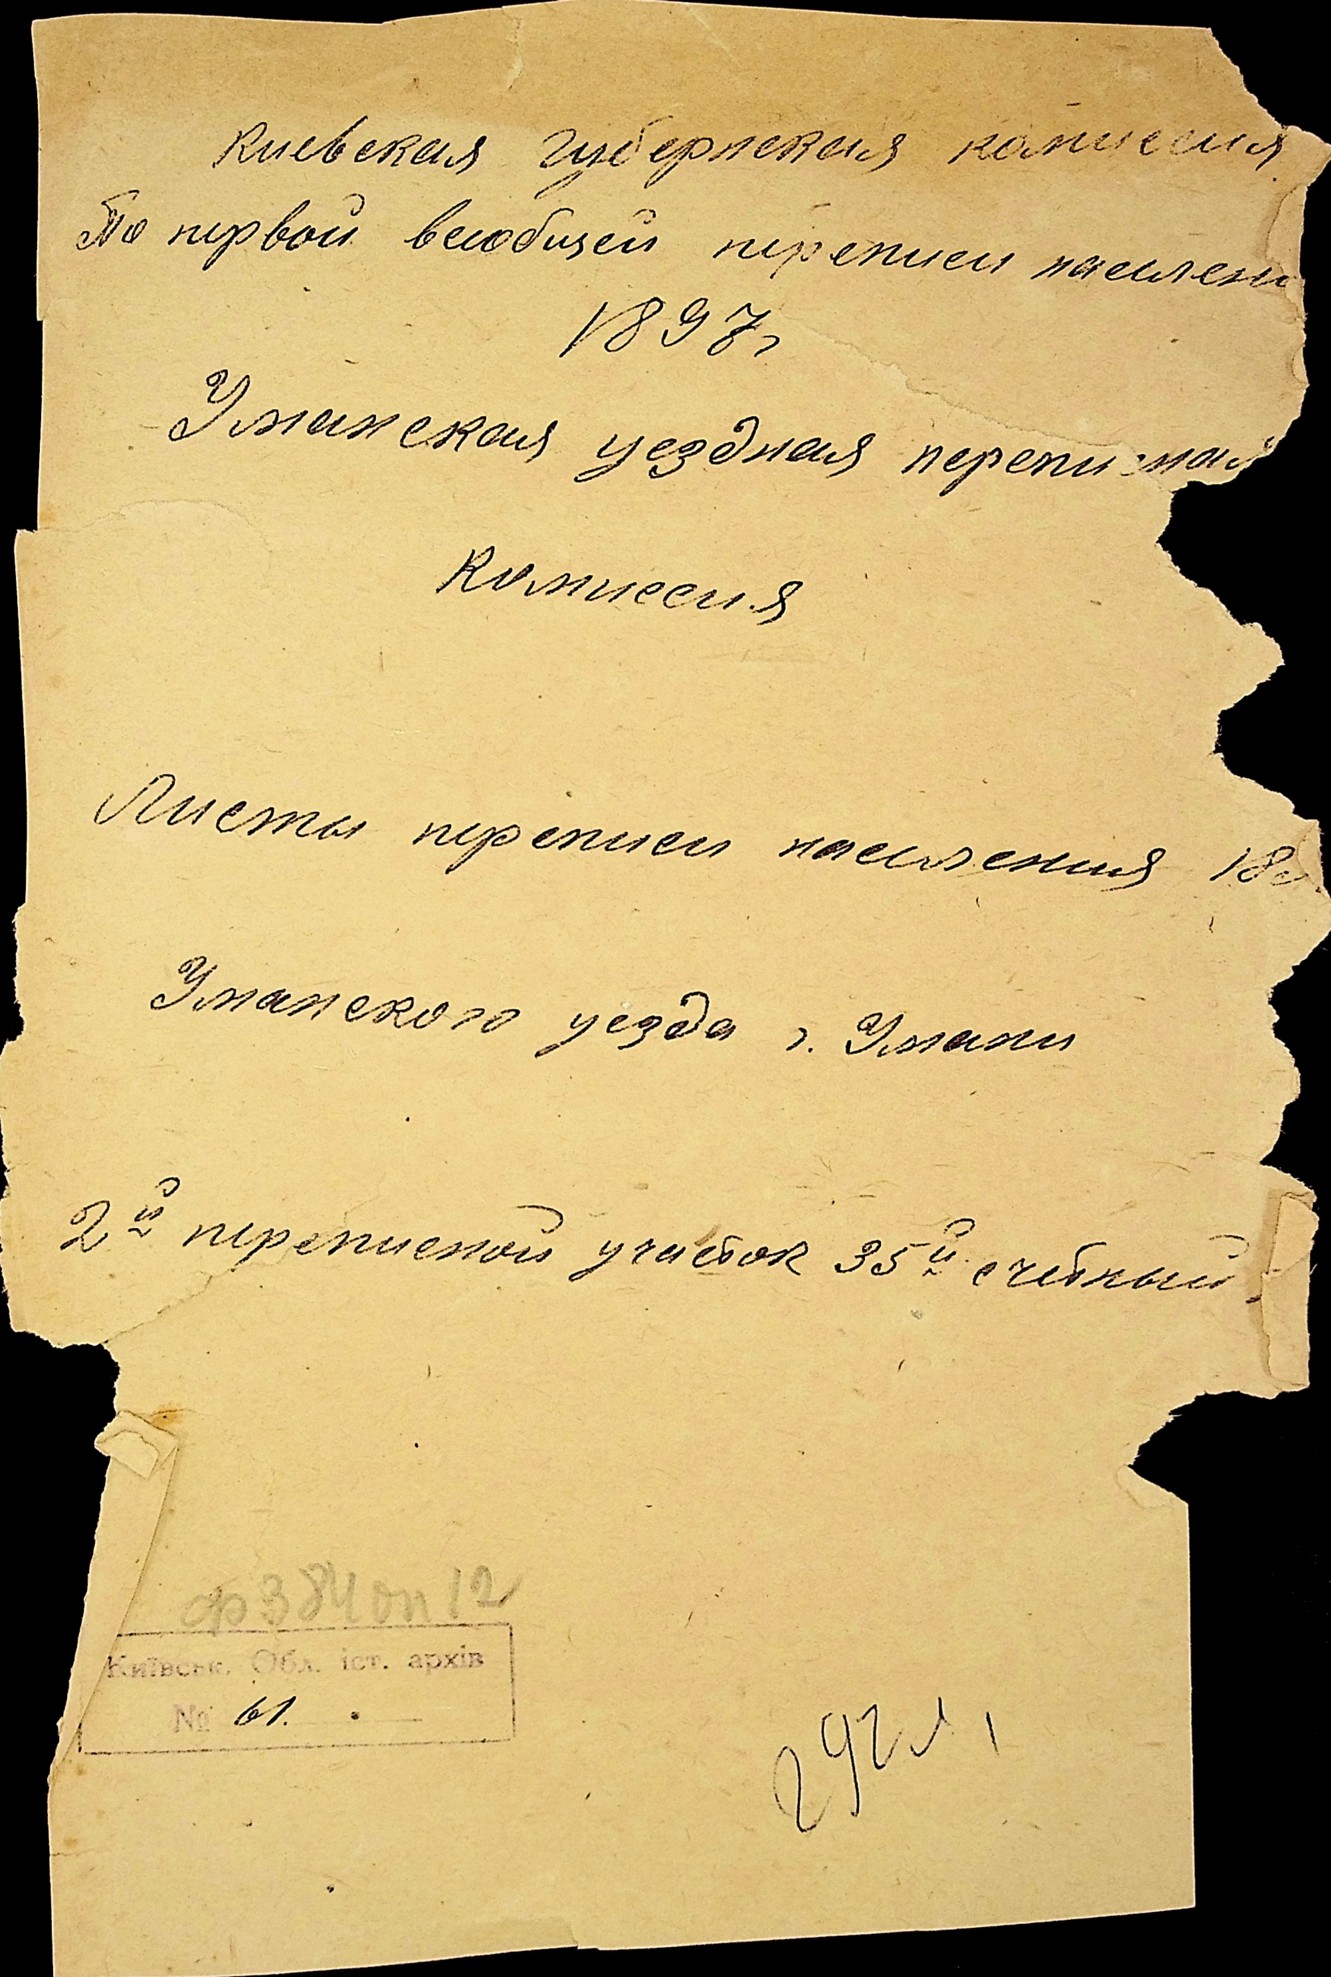 Киевская губернская комиссия
По первой всеобщей переписи населени
1897г
Уманская уездная переписная
Комиссия
Листы переписи населения 18
Уманского уезда г. Умани
2й переписной участок 35й счетный
ф384 оп 12
Київськ. Обл. іст. архів
№ 61.
292 л,